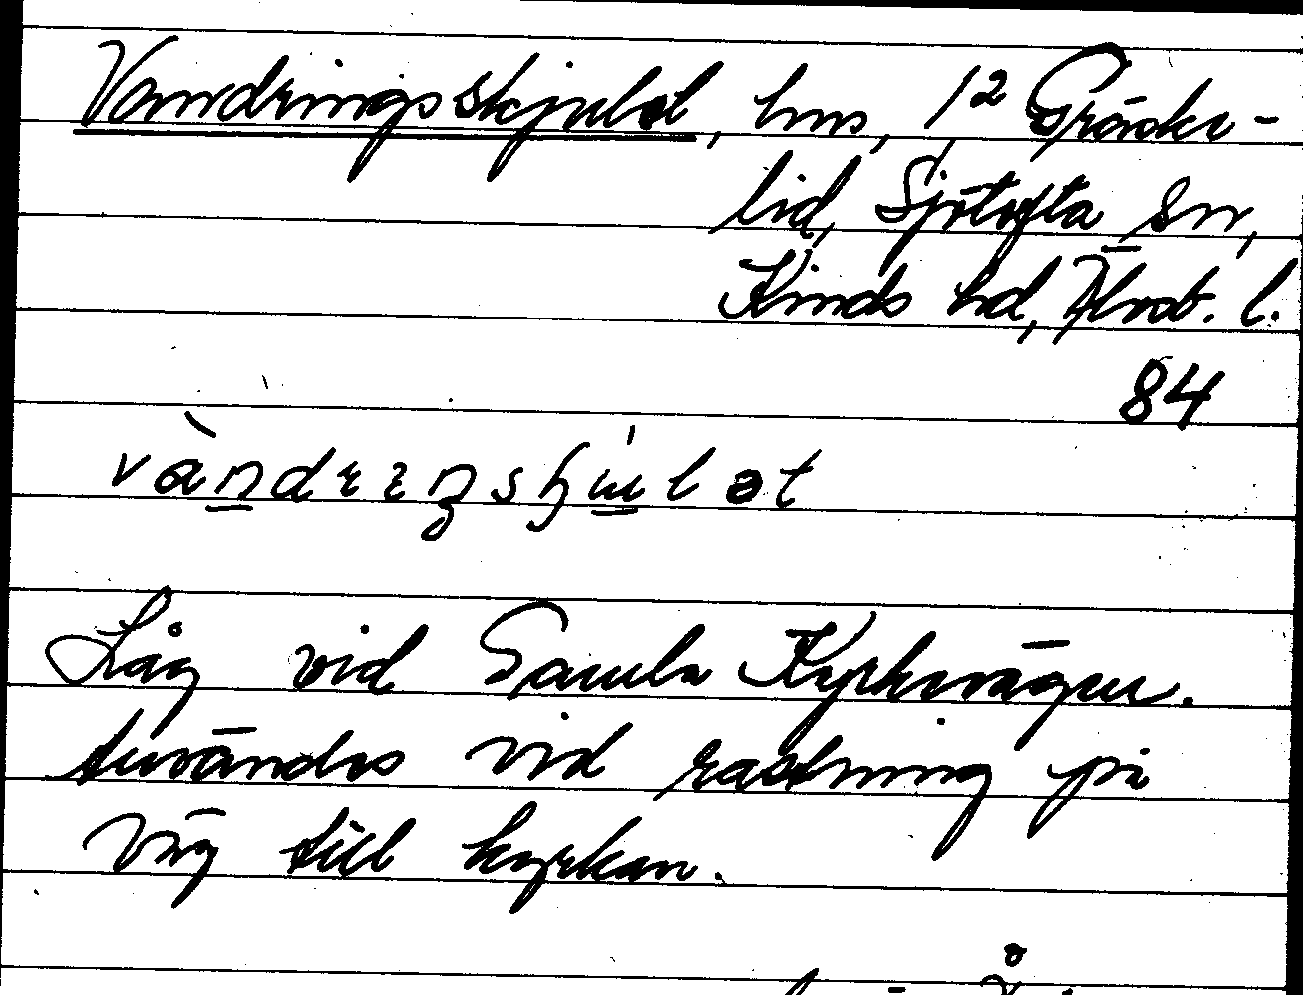 Vandringsskjulet, hus, 1² Gräske-
lid, Sjötofta sn,
Kinds hd, Älvsb. l.
84
vàndrɩŋsh̨ɯlət
Låg vid Gamla Kyrkvägen.
Användes vid rastning på
väg till kyrkan.